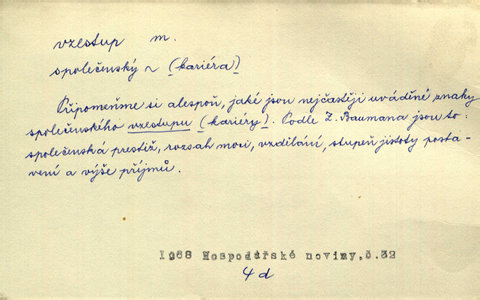 vzestup m.
společenský ~ (kariéra)
Připomeňme si alespoň, jaké jsou nejčastěji uváděné znaky
společenského vzestupu (kariéry). Podle Z. Baumana jsou to:
společenská prestiž, rozsah moci, vzdělání, stupeň jistoty posta-
vení a výše příjmů.
1968 Hospodářské noviny,č.32
4 d